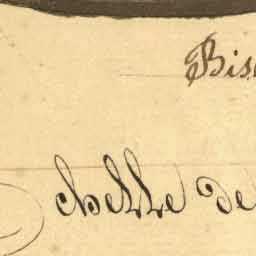 Bis
Echelle de